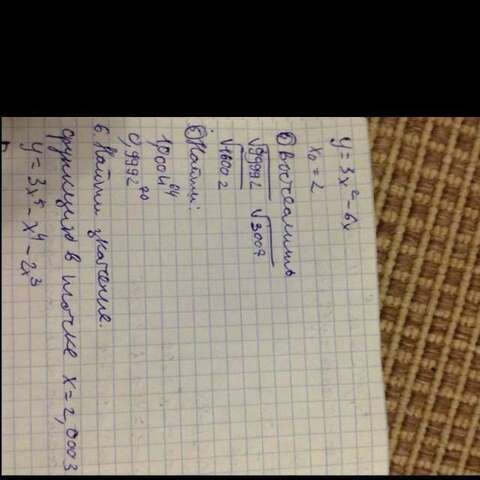 y = 3x² - 6x
x₀ = 2
④ Вычислить
√99992 √3007
√16002
⑤ Найти:
1,0004⁶⁴
0,9992²⁰
6. Найти значение
функции в точке x = 2,0003
y = 3x⁵ - x⁴ - 2x³